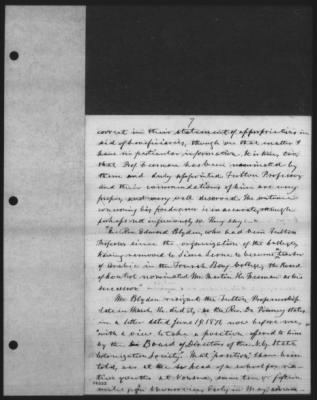 7
correct in their statement of appropriations in
aid of beneficiaries, though on that matter I
have no particular information. It is very
that Prof. Freeman has been nominated by
them and duly appointed Fulton Professor
and their commendations of him are very
proper and very well deserved. The sentence
concerning his predecessor is inaccurate, though
perhaps not injuriously so. They say
"The Rev. Edward Blyden, who had been Fulton
Professor since the organization of the college,
having removed to Sierra Leone to become Teacher
of Arabic in the Fourah Bay College, the Board
of nominated Mr. Martin H. Freeman as his
successor"
Mr. Blyden resigned the Fulton Professorship
late in March. He did it, as the Rev. Dr. Pinney states
in a letter dated June 19, 1871, now before me,
"with a view to take a position, offered to him
by the Board of Directors of the N.Y. State
Colonization Society." That position I have been
told, was at the head of a school for
native youths at Vonsua, some ten or fifteen
miles from Monrovia. Early in May